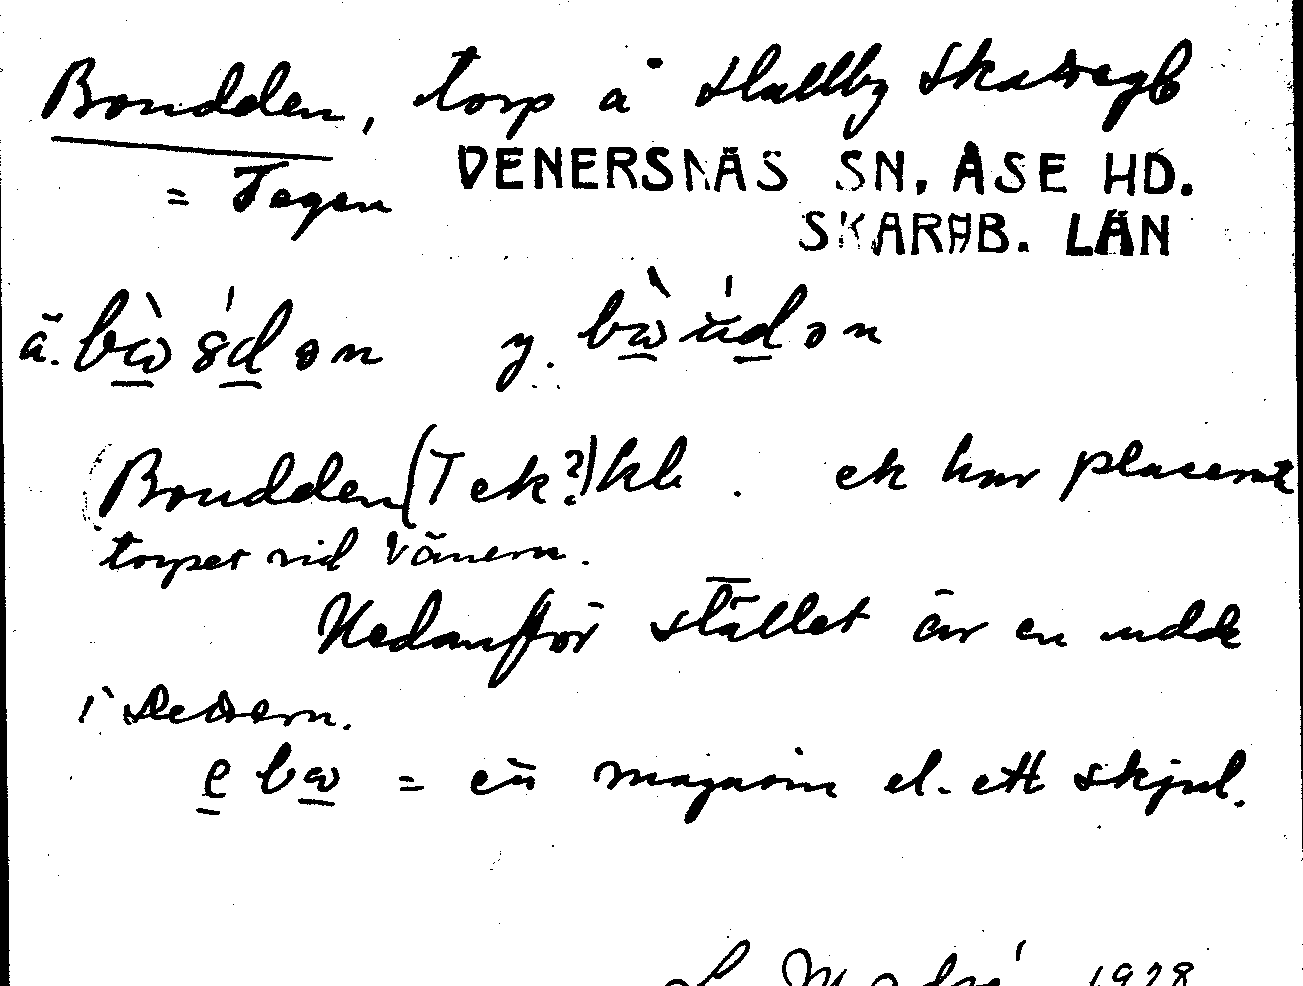 Boudden, torp å Hallby Skattegb
VENERSNÄS SN, ÅSE HD.
= Tegen
SKARAB. LÄN
ä. bɷ̀ 8́dən y. bɷ̀ ŭ́dən
Boudden (T ek?) kb. ek har placerat
torpet vid Vänern.
Nedanför stället är en udde
i Dettern.
e bɷ = en magasin el. ett skjul.
1928